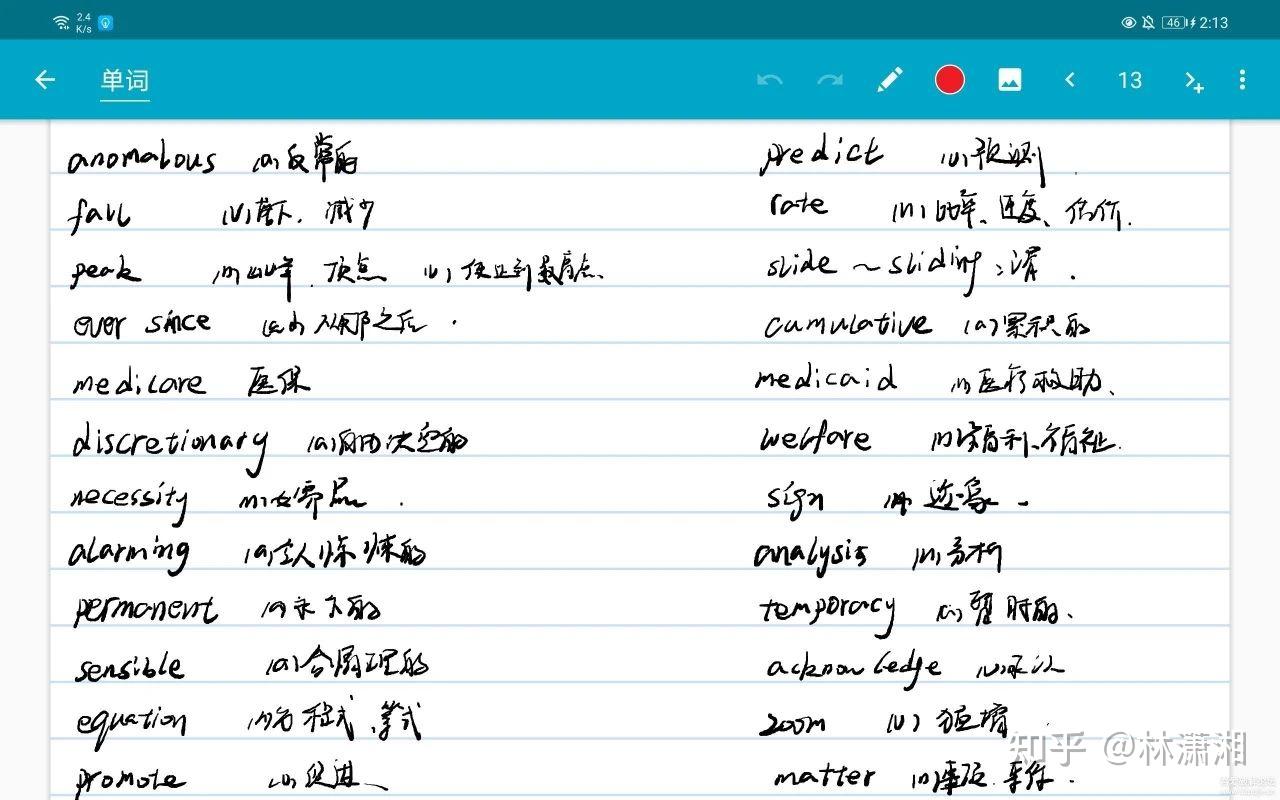 2.4 K/s 46 2:13
单词 13
anomalous (a)反常的 predict (v)预测
fall (v)落下、减少 rate (n)比率、速度、估价
peak (n)山峰、顶点 (v)使达到最高点 slide ~ sliding:滑
ever since 从那之后 cumulative (a)累积的
medicare 医保 medicaid (n)医疗救助
discretionary (a)自由决定的 welfare (n)福利、福祉
necessity (n)必需品 sign (n)迹象
alarming (a)令人惊慌的 analysis (n)分析
permanent (a)永久的 temporacy (a)暂时的
sensible (a)合情理的 acknowledge (v)承认
equation (n)方程式、等式 zoom (v)猛增
promote (v)促进 matter (n)事件
知乎 @林潇湘